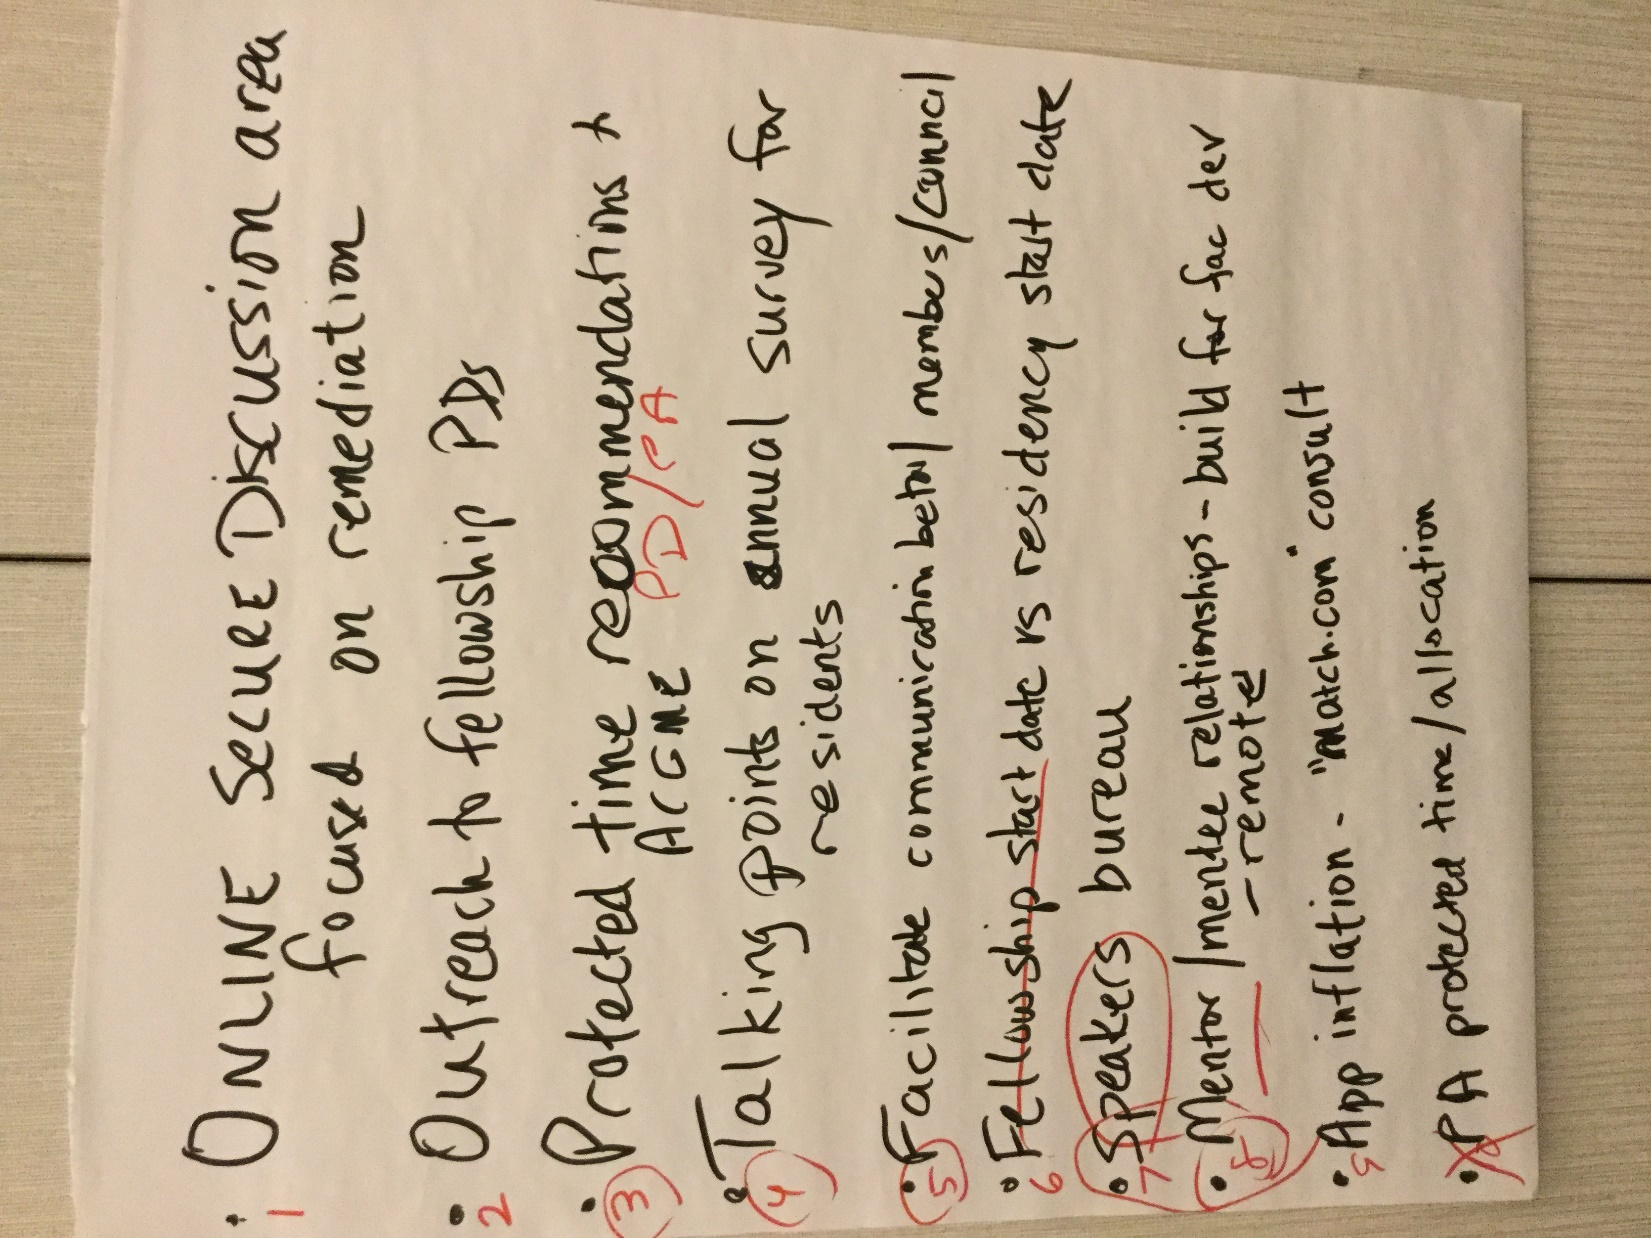 • ONLINE SECURE DISCUSSION area
1 focused on remediation
• Outreach to fellowship PDs
2
• Protected time recommendations +
3 ACGME PD/CA
• Talking points on annual survey for
4 residents
• Facilitate communication betw/ members/council
5
• Fellowship start date vs residency start date
6
• Speakers bureau
7
• Mentor/mentee relationships - build for fac dev
8 - remote
• App inflation - "match.com" consult
9
• PA protected time/allocation